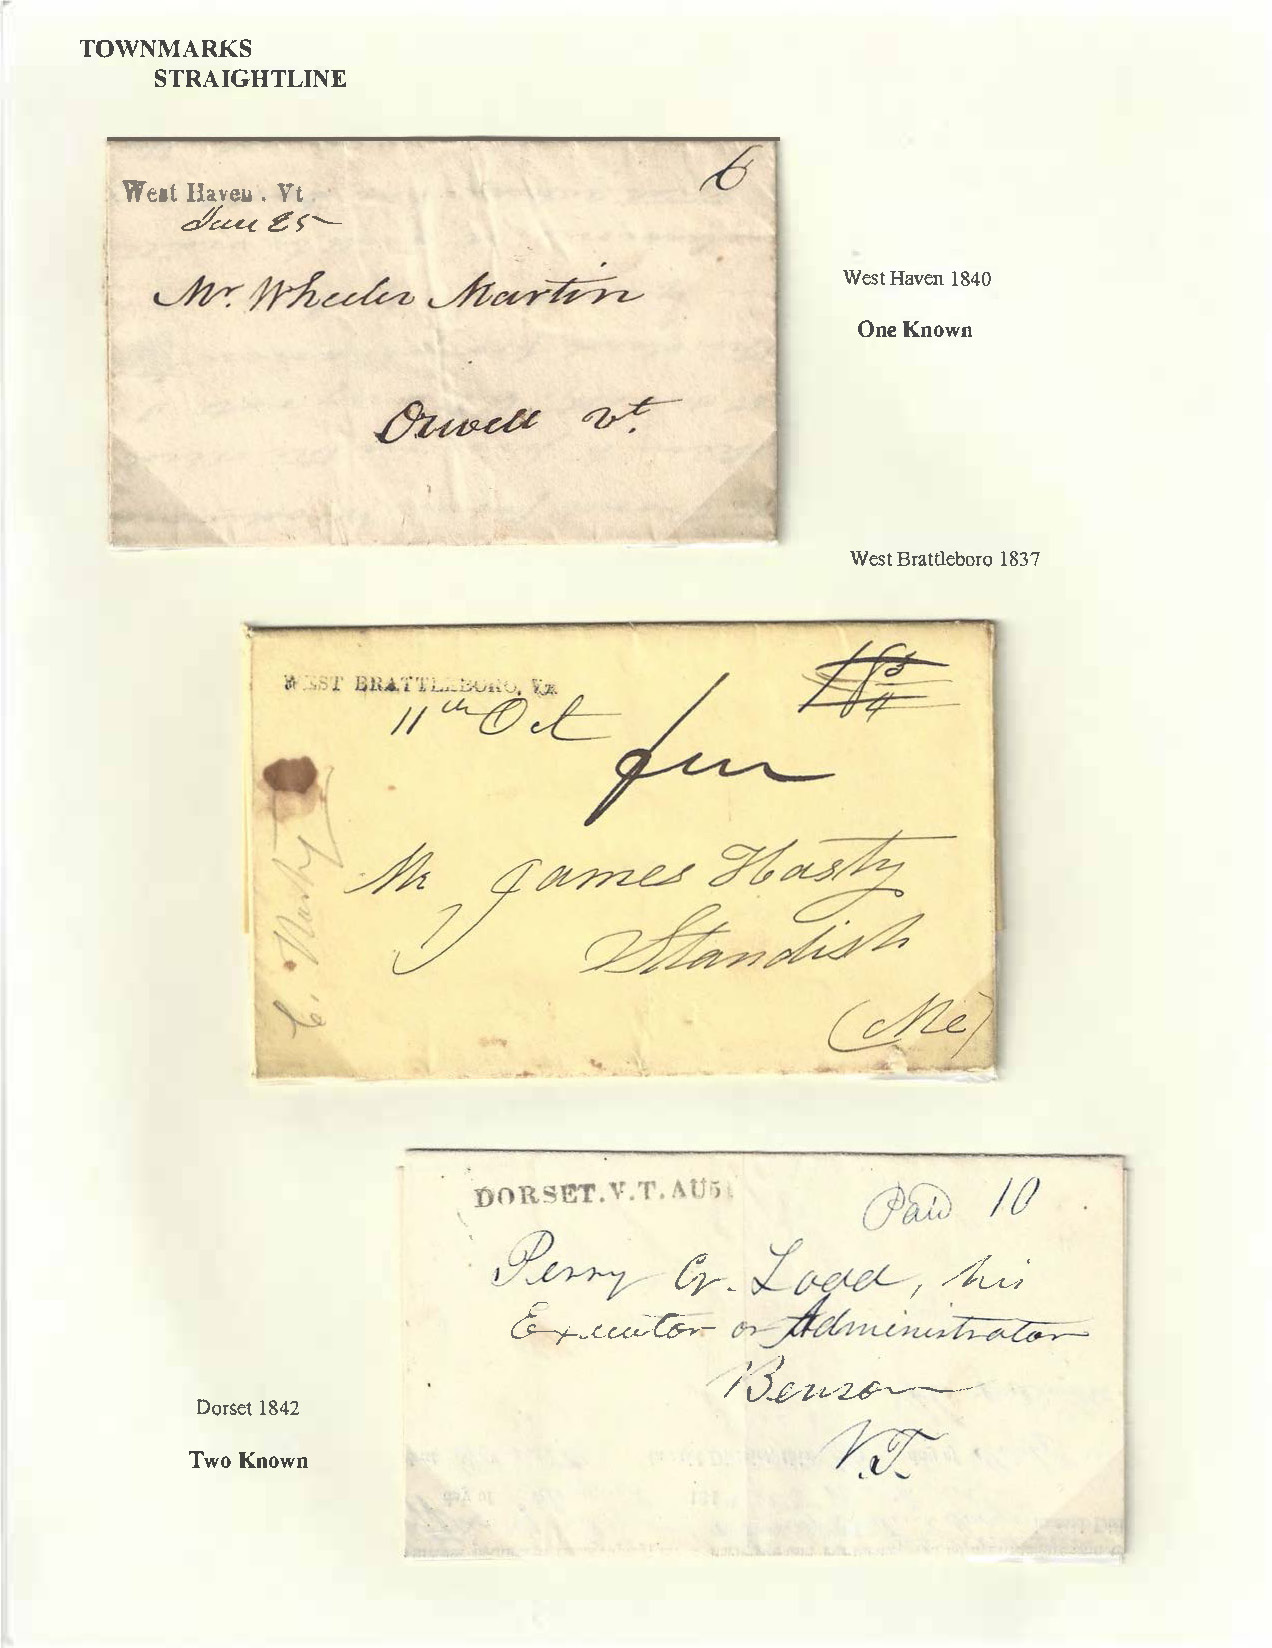 TOWNMARKS
STRAIGHTLINE
West Haven . Vt
6
Jan 25
Mr. Wheeler Martin
Orwell Vt.
West Haven 1840
One Known
West Brattleboro 1837
WEST BRATTLEBORO, Vt.
18 3/4
11th Oct
Mr James Hasty
Standish
(Me)
DORSET.V.T.AU51
Paid 10
Perry G. Ladd, his
Executor or Administrator
Benson
V.T.
Dorset 1842
Two Known